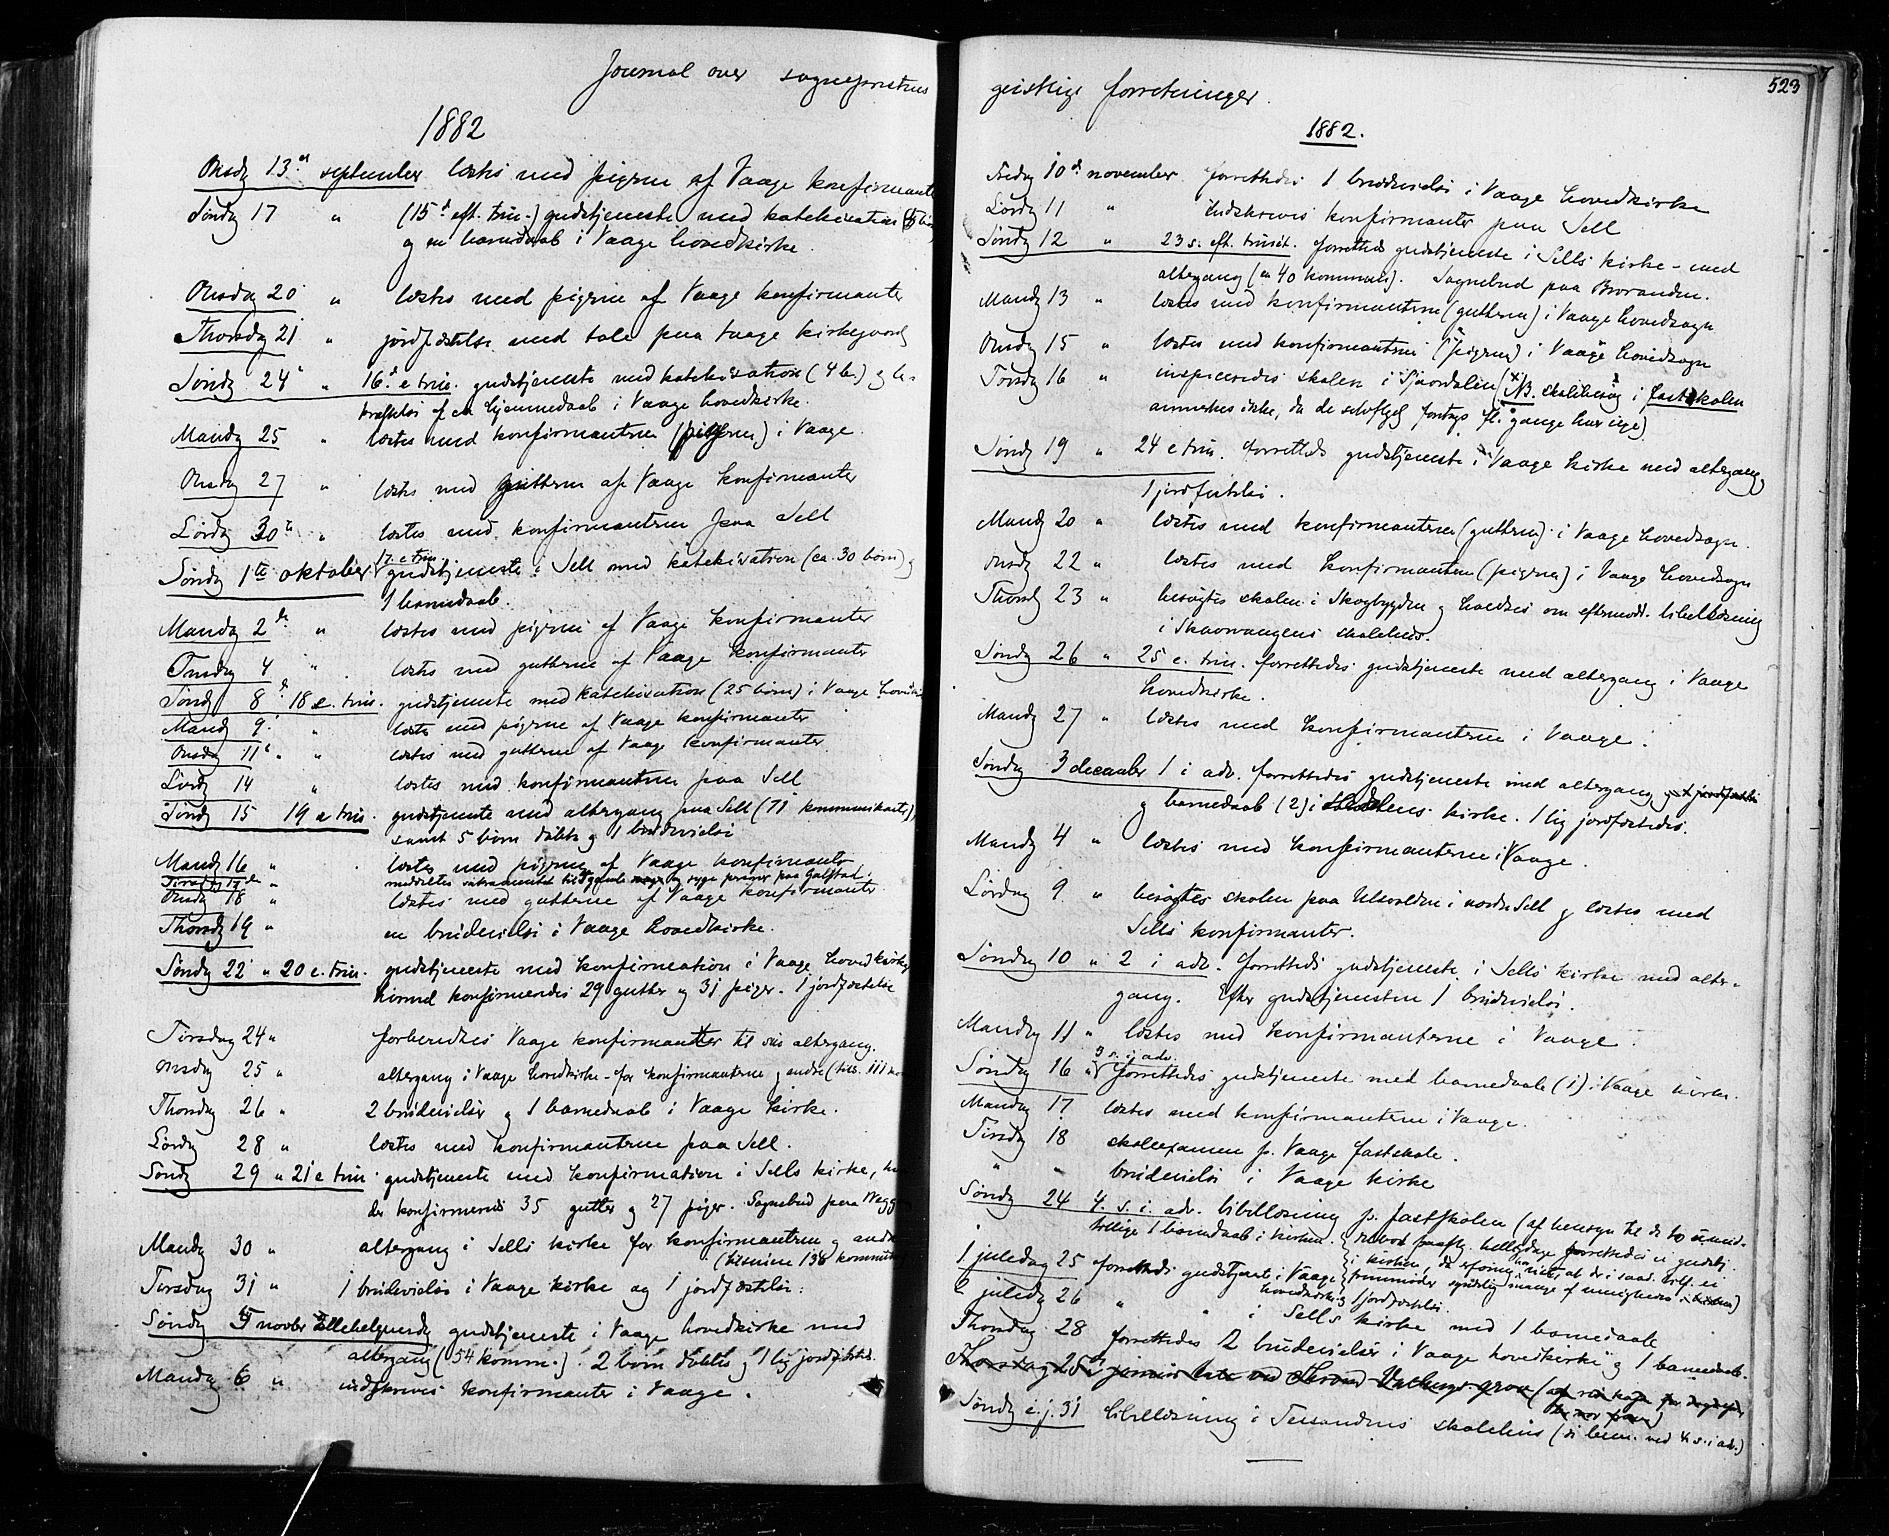 Journal over sogneprestens
1882
Onsdg 13de september læstes med pigerne af Vaage konfirmanter
Søndg 17 " (15de eft. trin.) gudstjeneste med katekisation
og en barnedaab i Vaage hovedkirke.
Onsdag 20 " læstes med pigerne af Vaage konfirmanter
Thorsdg 21 " jordfæstelse med tale paa Vaage kirkegaard
Søndg 24de " 16de e trin. gudstjeneste med katekisation (4 b.) og be-
kræftelse af en hjemmedaab i Vaage hovedkirke.
Mandg 25 " læstes med konfirmanterne (pigerne) i Vaage.
Onsdag 27 " læstes med gutterne af Vaage konfirmanter
Lørdg 30te " læstes med konfirmanterne paa Sell
Søndg 1ste oktober 17. e trin. gudstjeneste i Sell med katekisation (ca. 30 børn) og
1 barnedaab.
Mandag 2den " læstes med pigerne af Vaage konfirmanter
Onsdag 4 " læstes med gutterne af Vaage konfirmanter
Søndg 8de 18 e. trin. gudstjeneste med katekisation (25 børn) i Vaage hovedk
Mandg 9de " læstes med pigerne af Vaage konfirmanter
Onsdag 11te " " læstes med gutterne af Vaage konfirmanter
Lørdg 14 " læstes med konfirmanterne paa Sell
Søndg 15 19 e trin. gudstjeneste med altergang paa Sell (71 kommunikanter),
samt 5 børn døbte og 1 brudevielse
Mandg 16 " læstes med pigerne af Vaage konfirmanter
Tirsdag 17de " meddeltes sakramentet til gamle og syge personer paa
Onsdag 18 " læstes med gutterne af Vaage konfirmanter
Thorsdg 19 " en brudevielse i Vaage hovedkirke.
Søndg 22 " 20 e. trin. gudstjeneste med konfirmation i Vaage hovedkirke,
hvorved konfirmeredes 29 gutter og 31 piger. 1 jordfæstelse
Tirsdag 24 " forberedtes Vaage konfirmanter til sin altergang.
Onsdg 25 " altergang i Vaage hovedkirke - for konfirmanterne og andre (tils. 111
Thorsdag 26 " 2 brudevielser og 1 barnedaab i Vaage kirke.
Lørdg 28 " læstes med konfirmanterne paa Sell.
Søndg 29 " 21 e trin gudstjeneste med konfirmation i Sells kirke,
der konfirmeredes 35 gutter og 27 piger. Sognebud paa
Mandg 30 " altergang i Sells kirke for konfirmanterne og andre
(tilsamen 138
Tirsdag 31 " 1 brudevielse i Vaage kirke og 1 jordfæstelse.
Søndg 5 novbr allehelgensdg gudstjeneste i Vaage hovedkirke med
altergang (54 komm.). 2 børn døbtes og 1 lig jordfæstedes.
Mandag 6 " indskreves konfirmanter i Vaage.
geistlige forretninger.
523
1882.
Fredag 10de november forrettedes 1 brudevielse i Vaage hovedkirke
Lørdg 11 " Indskreves konfirmanter paa Sell
Søndg 12 " 23 s. eft. trinit. forrettedes gudstjeneste i Sells kirke - med
altergang (ca 40 kommun.). Sognebud paa
Mandg 13 " læstes med konfirmanterne (gutterne) i Vaage hovedsogn
Onsdg 15 " læstes med konfirmanterne (pigerne) i Vaage hovedsogn
Torsdg 16 " inspiceredes skolen i Sjaardalen (NB. skolebesøg i fastskolen
anmerkes ikke, da de selvfølgel. foretages fl. gange hver uge)
Søndg 19 " 24 e trin. forrettedes gudstjeneste i Vaage kirke med altergang,
1 jordfæstelse.
Mandg 20 " læstes med konfirmanterne (gutterne) i Vaage hovedsogn.
Onsdg 22 " læstes med konfirmanterne (pigerne) i Vaage hovedsogn
Thorsdg 23 " besøgtes skolen i Skogbygden og holdtes om eftermidd. bibellæsning
i Skaarvangens skolehus.
Søndg 26 " 25 e. trin. forrettedes gudstjeneste med altergang i Vaage
hovedkirke.
Mandg 27 " læstes med konfirmanterne i Vaage.
Søndag 3 december 1 i adv. forrettedes gudstjeneste med altergang
og barnedaab (2) i kirke. 1 lig jordfæstedes.
Mandg 4 " læstes med konfirmanterne i Vaage.
Lørdag 9 " besøgtes skolen paa Ulvolden i nordre Sell og læstes med
Sells konfirmanter.
Søndag 10 " 2 i adv. forrettedes gudstjeneste i Sells kirke med alter-
gang. Efter gudstjenesten 1 brudevielse.
Mandg 11 " læstes med konfirmanterne i Vaage.
Søndag 16 " 3 s. i adv. forrettedes gudstjeneste med barnedaab (1) i Vaage kirke.
Mandag 17 læstes med konfirmanterne i Vaage.
Tirsdg 18 skoleexamen p. Vaage fastskole.
" " brudevielse i Vaage kirke
Søndg 24 4. s. i. adv. bibellæsning p. fastskolen (af hensyn til de to umid-
1 barnedaab i kirken. helligdage forrettedes ei gudstj.
i kirken, da erfaring har vist, at der i saad. tilf. ei
fremmøder synderlig mange af menigheden)
1 juledag 25 forrettedes gudstjenest. i Vaage
hovedkirke og 1 jordfæstelse.
2 juledg 26 " " i Sells kirke med 1 barnedaab
Thorsdag 28 forrettedes 2 brudevielser i Vaage hovedkirke og 1 barnedaab.
Søndg e. j. 31 bibellæsning i Tessandens skolehus (se bem. ved 4. s. i adv.)